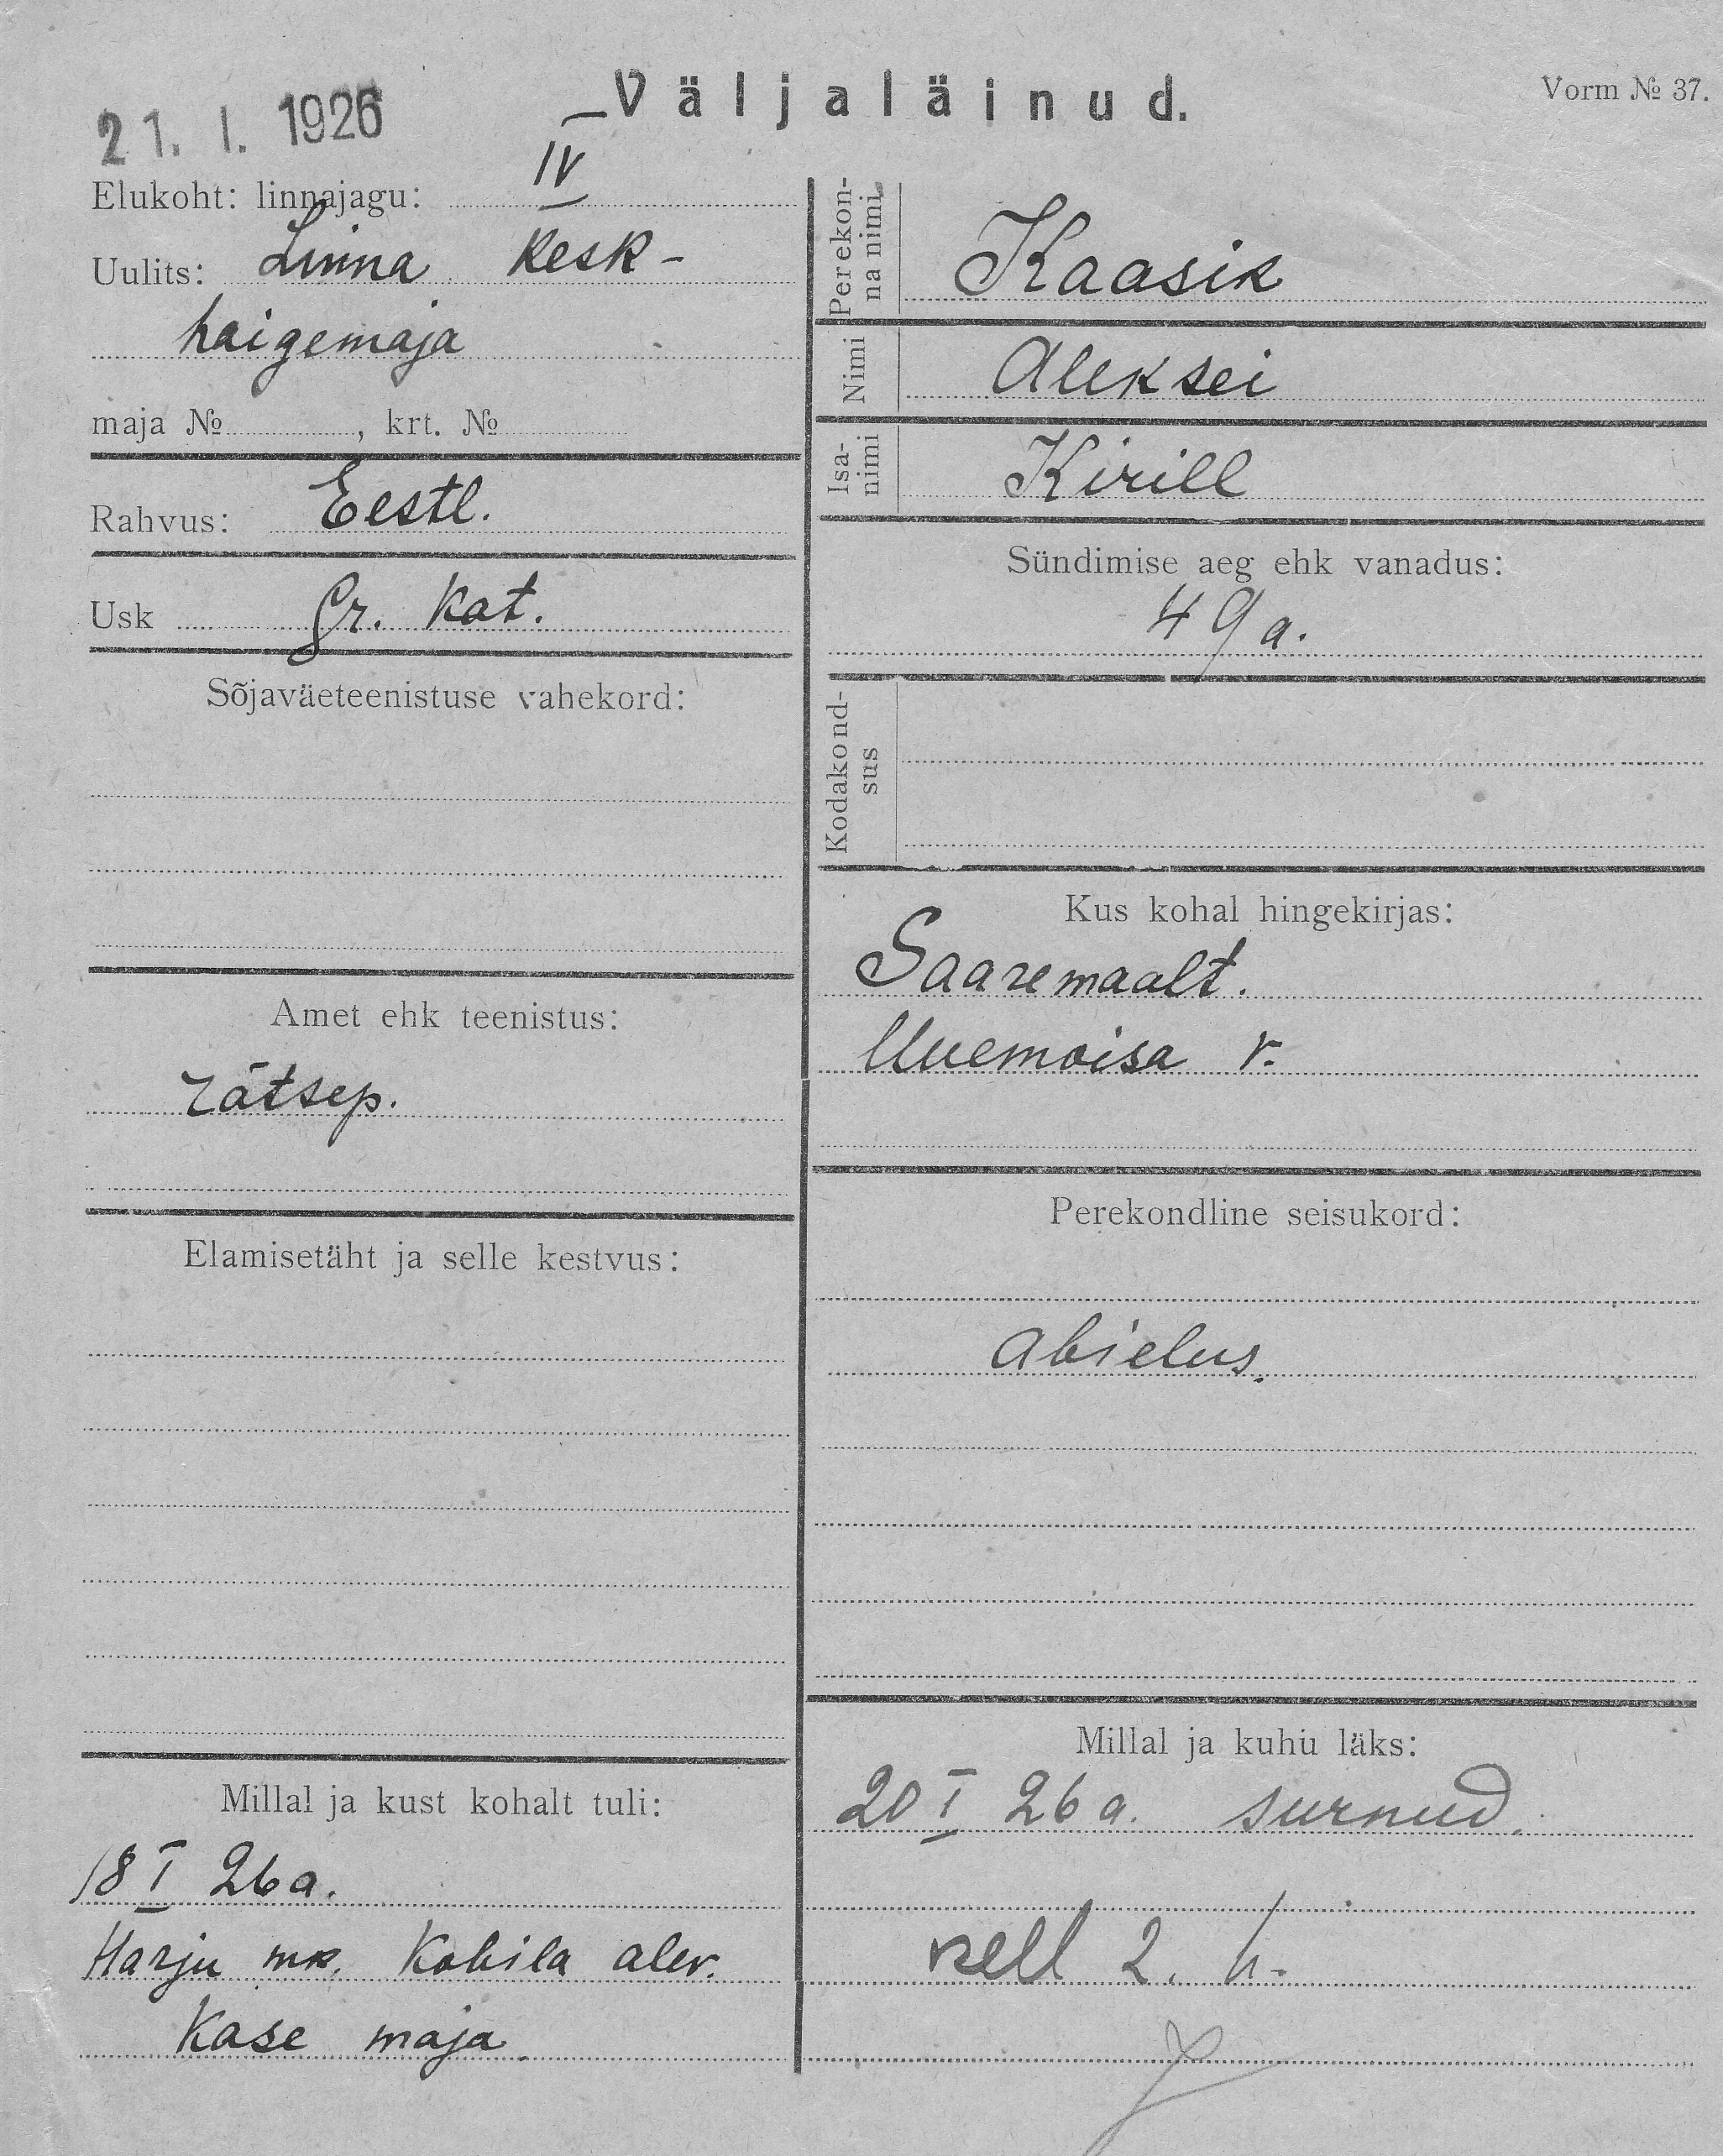 Väljaläinud.
Vorm № 37.
21. I. 1926
Elukoht: linnajagu: IV
Uulits: Linna Kesk-
haigemaja
maja № , krt. №
Rahvus: Eestl.
Usk Gr. Kat.
Sõjaväeteenistuse vahekord:
Amet ehk teenistus:
rätsep.
Elamisetäht ja selle kestvus:
Millal ja kust kohalt tuli:
18 I 26 a.
Harju mk. Kohila alev.
Kase maja.
Perekon-
na nimi
Kaasik
Nimi
Aleksei
Isa-
nimi
Kirill
Sündimise aeg ehk vanadus:
49 a.
Kodakond-
sus
Kus kohal hingekirjas:
Saaremaalt.
Uuemoisa v.
Perekondline seisukord:
abielus.
Millal ja kuhu läks:
20 I 26 a. surnud.
kell 2. h.